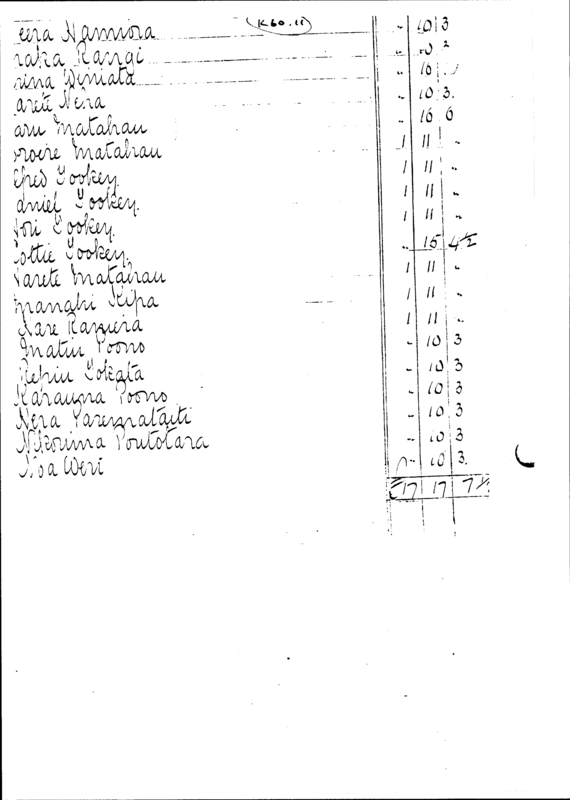 K60.11
eera Namiora " 10 3
raka Rangi " 10 2
rina Winiata " 10
arete Nera " 10 3.
aru Matahau " 16 6
oroire Matahau 1 11 "
lfred Tookey. 1 11 "
aniel Tookey. 1 11 "
Hori Tookey. 1 11 "
Lottie Tookey. " 15 4½
Karete Matahau 1 11 "
manahi Kipa 1 11 "
Kare Rameira 1 11 "
Matiu Poono - 10 3
Rehiu Tokata - 10 3
Karauna Poono - 10 3
Nera Paremataiti - 10 3
Nikorima Poutotara - 10 3
Noa Weri " 10 3.
£17 17 7½